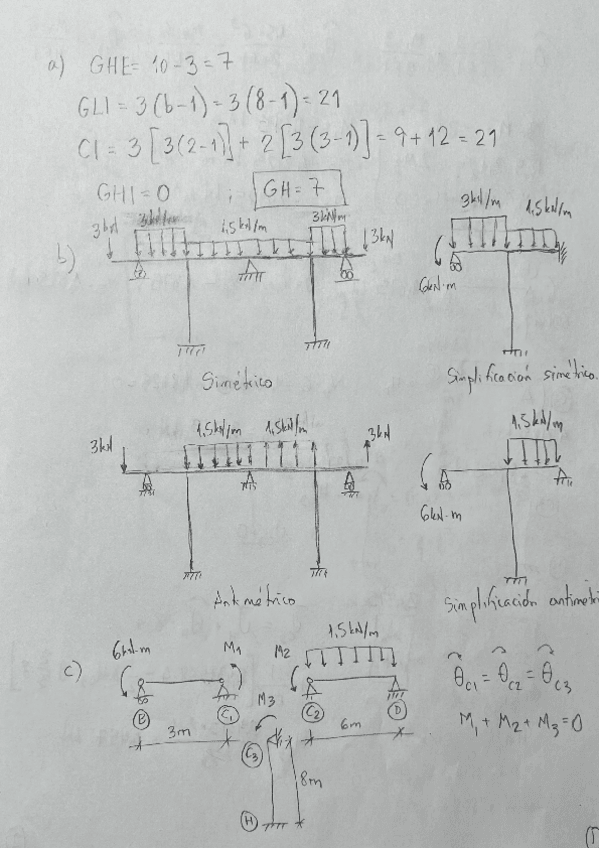 a) GHE = 10 - 3 = 7
GLI = 3(b-1) = 3(8-1) = 21
CI = 3[3(2-1)] + 2[3(3-1)] = 9 + 12 = 21
GHI = 0 ; GH = 7
b)
3kN 3kN/m 1,5kN/m 3kN/m 3kN
3kN/m 1,5kN/m
6kN·m
Simétrico
Simplificación simétrico.
3kN 1,5kN/m 1,5kN/m 3kN
1,5kN/m
6kN·m
Antimétrico
Simplificación antimétri
c)
6kN·m M1 M2 1,5kN/m
B C1 C2 D
3m M3 6m
C3 8m
H
θC1 = θC2 = θC3
M1 + M2 + M3 = 0